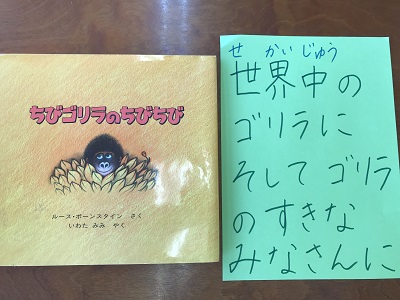 ちびゴリラのちびちび
ルース・ボーンスタイン さく
いわた みみ やく
せ かい じゅう
世界中の
ゴリラに
そして ゴリラ
の すきな
みなさんに